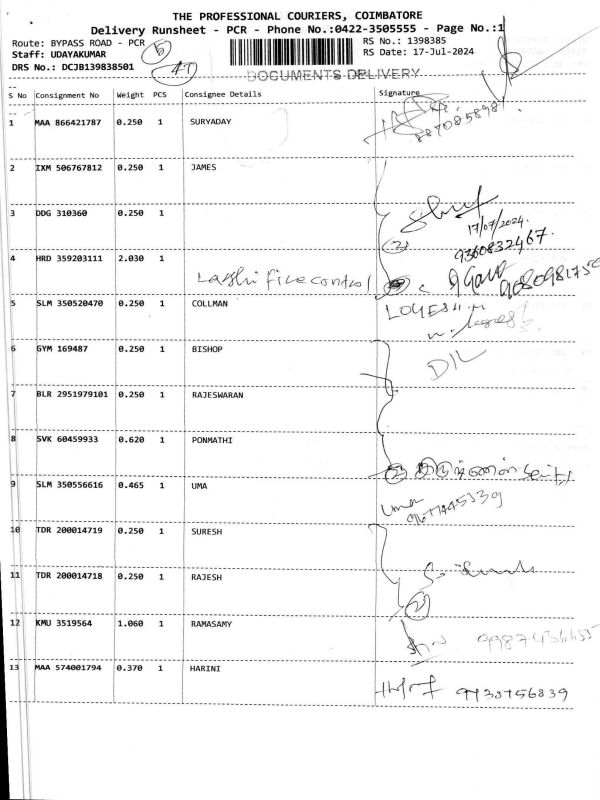 THE PROFESSIONAL COURIERS, COIMBATORE
Delivery Runsheet - PCR - Phone No.:0422-3505555 - Page No.:1
Route: BYPASS ROAD - PCR
RS No.: 1398385
Staff: UDAYAKUMAR
RS Date: 17-Jul-2024
DRS No.: DCJB139838501
DOCUMENTS DELIVERY
S No Consignment No Weight PCS Consignee Details Signature
1 MAA 866421787 0.250 1 SURYADAY
2 IXM 506767812 0.250 1 JAMES
3 DDG 310360 0.250 1
17/07/2024
9360832467
4 HRD 359203111 2.030 1
(2)
fire control
5 SLM 350520470 0.250 1 COLLMAN
LOGESH.M
6 GYM 169487 0.250 1 BISHOP
7 BLR 2951979101 0.250 1 RAJESWARAN
8 SVK 60459933 0.620 1 PONMATHI
(2)
9 SLM 350556616 0.465 1 UMA
Uma
10 TDR 200014719 0.250 1 SURESH
11 TDR 200014718 0.250 1 RAJESH
(2)
12 KMU 3519564 1.060 1 RAMASAMY
13 MAA 574001794 0.370 1 HARINI